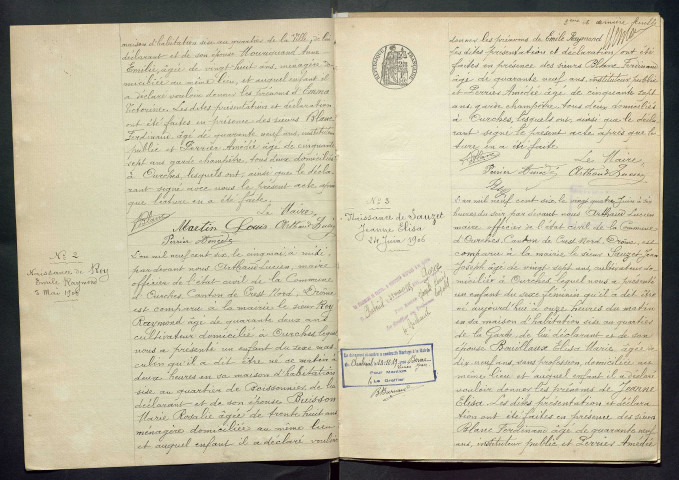 maison d'habitation sise au quartier de la Ville, de lui
déclarant et de son épouse Anne
Emélie, âgée de vingt huit ans, ménagère do-
miciliée au même lieu, et auquel enfant il
a déclaré vouloir donner les prénoms d'Emma
Victorine. Les dites présentation et déclaration
ont été faites en présence des sieurs Blanc
Ferdinand âgé de quarante neuf ans, instituteur
public et Perriès Amédié âgé de cinquante
sept ans garde champêtre, tous deux domiciliés
à Ourches, lesquels ont, ainsi que le décla-
rant signé avec nous le présent acte, après
que lecture en a été faite.
Le Maire,
Blanc
Martin Louis
N° 2
Naissance de Roy
Emile Raymond
5 Mai 1906
L'an mil neuf cent six, le cinq mai à midi,
par devant nous Arthaud Lucien, maire
officier de l'état civil de la Commune
d'Ourches, Canton de Crest Nord, Drôme
est comparu à la mairie le sieur Roy
Raymond âgé de quarante deux ans
cultivateur domicilié à Ourches lequel
nous a présenté un enfant du sexe mas-
culin qu'il a dit être né ce matin à
deux heures en sa maison d'habitation
sise au quartier de Boissonnies, de lui
déclarant et de son épouse Buisson
Marie Rosalie âgée de trente huit ans
ménagère domiciliée au même lieu
et auquel enfant il a déclaré vouloir
2ème et dernière feuille
donner les prénoms de Emile Raymond
Les dites présentation et déclaration ont été
faites en présence des sieurs Blanc Ferdinand
âgé de quarante neuf ans, instituteur public
et Perriès Amédié âgé de cinquante sept
ans, garde champêtre tous deux domiciliés
à Ourches, lesquels ont, ainsi que le décla-
rant signé le présent acte après que lec-
ture en a été faite
Le Maire,
Blanc
Roy
N° 3
Naissance de Sauzet
Jeanne Elisa
24 Juin 1906
L'an mil neuf cent six le vingt quatre Juin à six
heures du soir par devant nous Arthaud Lucien
maire officier de l'état civil de la Commune
d'Ourches, Canton de Crest Nord, Drôme, est
comparu à la mairie le sieur Sauzet Jean
Joseph âgé de vingt sept ans, cultivateur do-
micilié à Ourches lequel nous a présenté
un enfant du sexe féminin qu'il a dit être
né aujourd'hui à onze heures du matin
en sa maison d'habitation sise au quartier
de la Garde de lui déclarant et de son
épouse Bouillanx Elisa Marie âgée de
dix neuf ans, sans profession, domiciliée au
même lieu et auquel enfant il a déclaré
vouloir donner les prénoms de Jeanne
Elisa. Les dites présentation et déclara-
tion ont été faites en présence des sieurs
Blanc Ferdinand âgé de quarante neuf
ans, instituteur public et Perriès Amédié